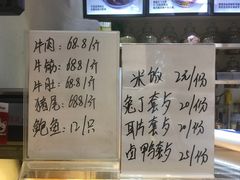 牛肉：68.8/斤
牛筋：68.8/斤
牛肚：68.8/斤
猪尾：68.8/斤
鲍鱼：12/只
米饭 2元/份
兔丁套夕 20/份
耳片套夕 20/份
卤鸭套夕 25/份